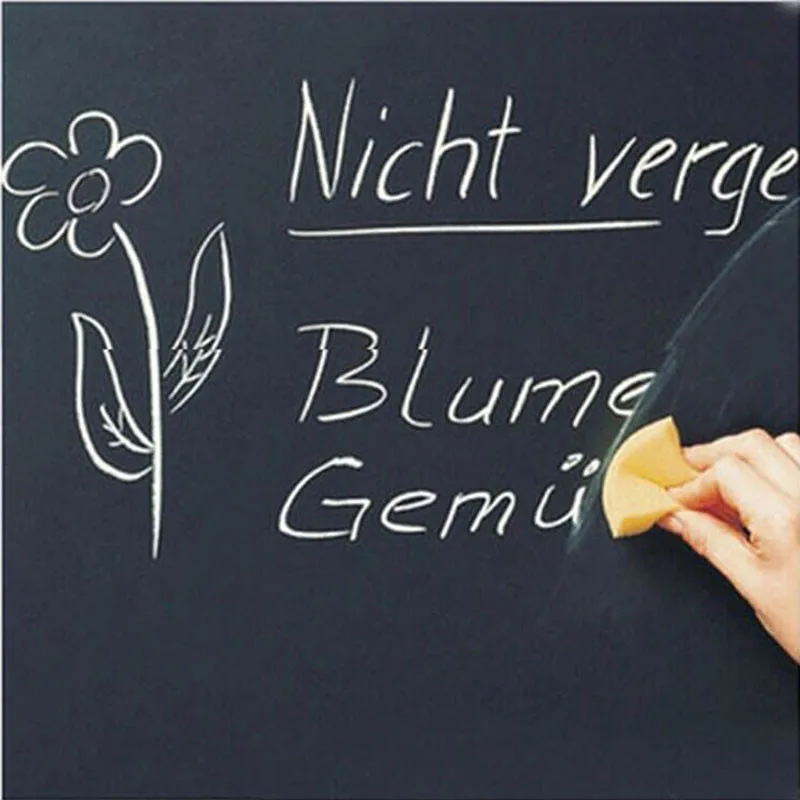 Nicht verge
Blume
Gemü